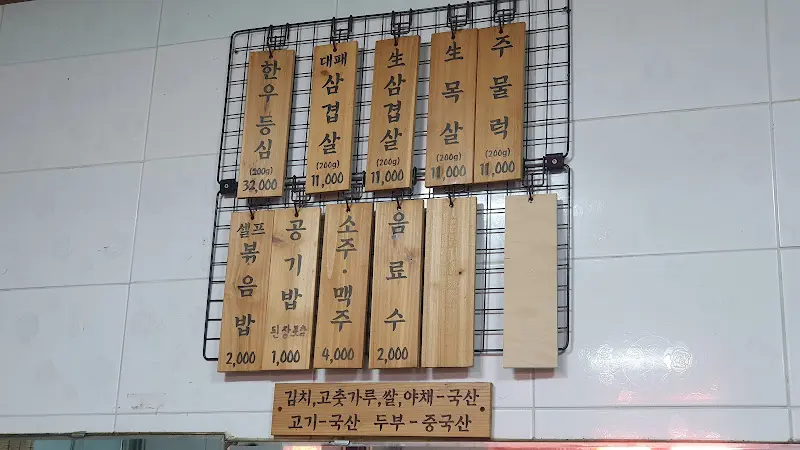 한우등심
(200g)
32,000
대패
삼겹살
(200g)
11,000
生삼겹살
(200g)
11,000
生목살
(200g)
11,000
주물럭
(200g)
11,000
셀프
볶음밥
2,000
공기밥
된장포함
1,000
소주·맥주
4,000
음료수
2,000
김치,고춧가루,쌀,야채-국산
고기-국산 두부-중국산